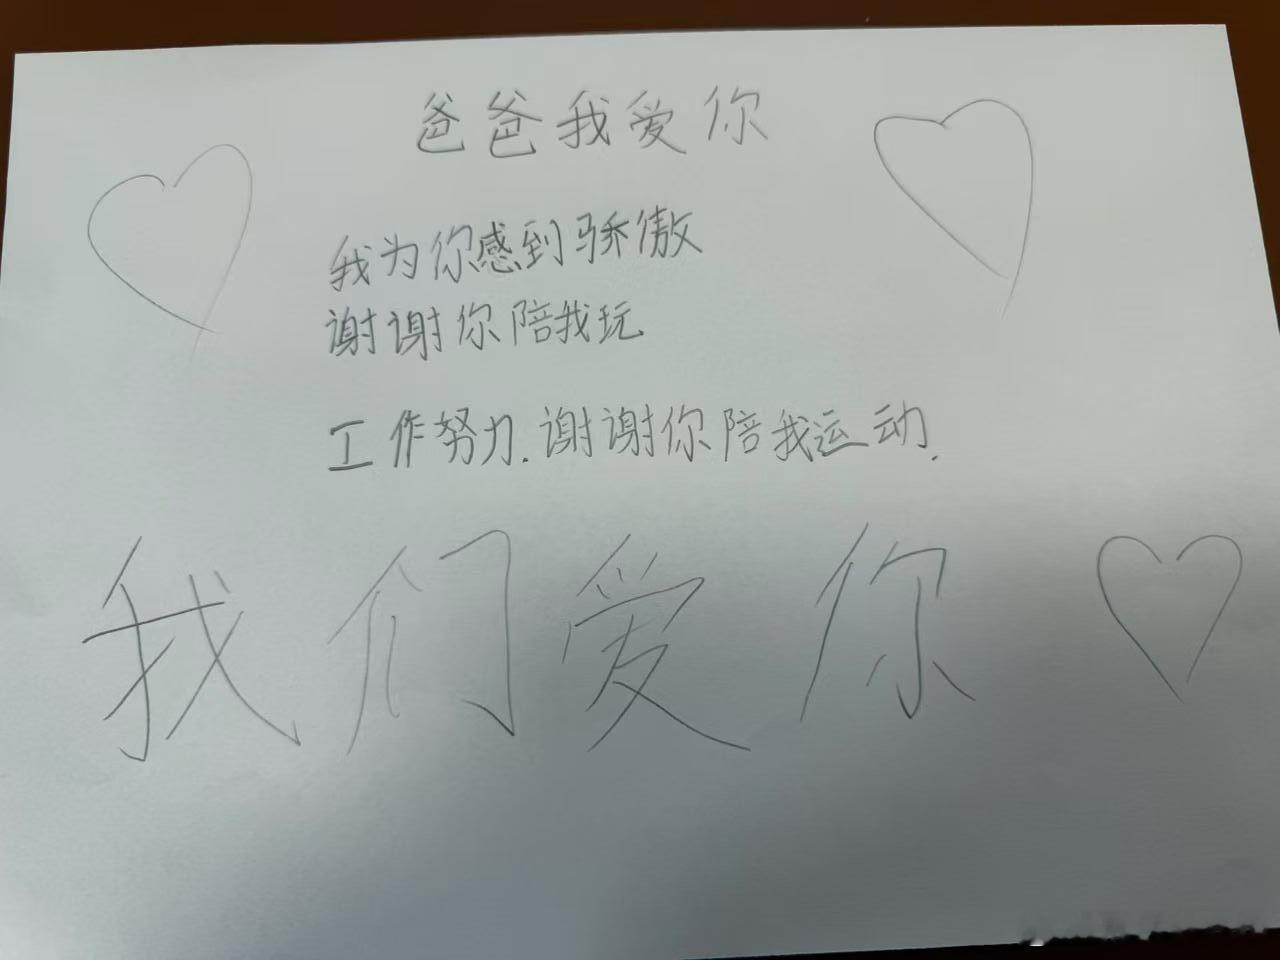 爸爸我爱你
我为你感到骄傲
谢谢你陪我玩
工作努力.谢谢你陪我运动.
我们爱你